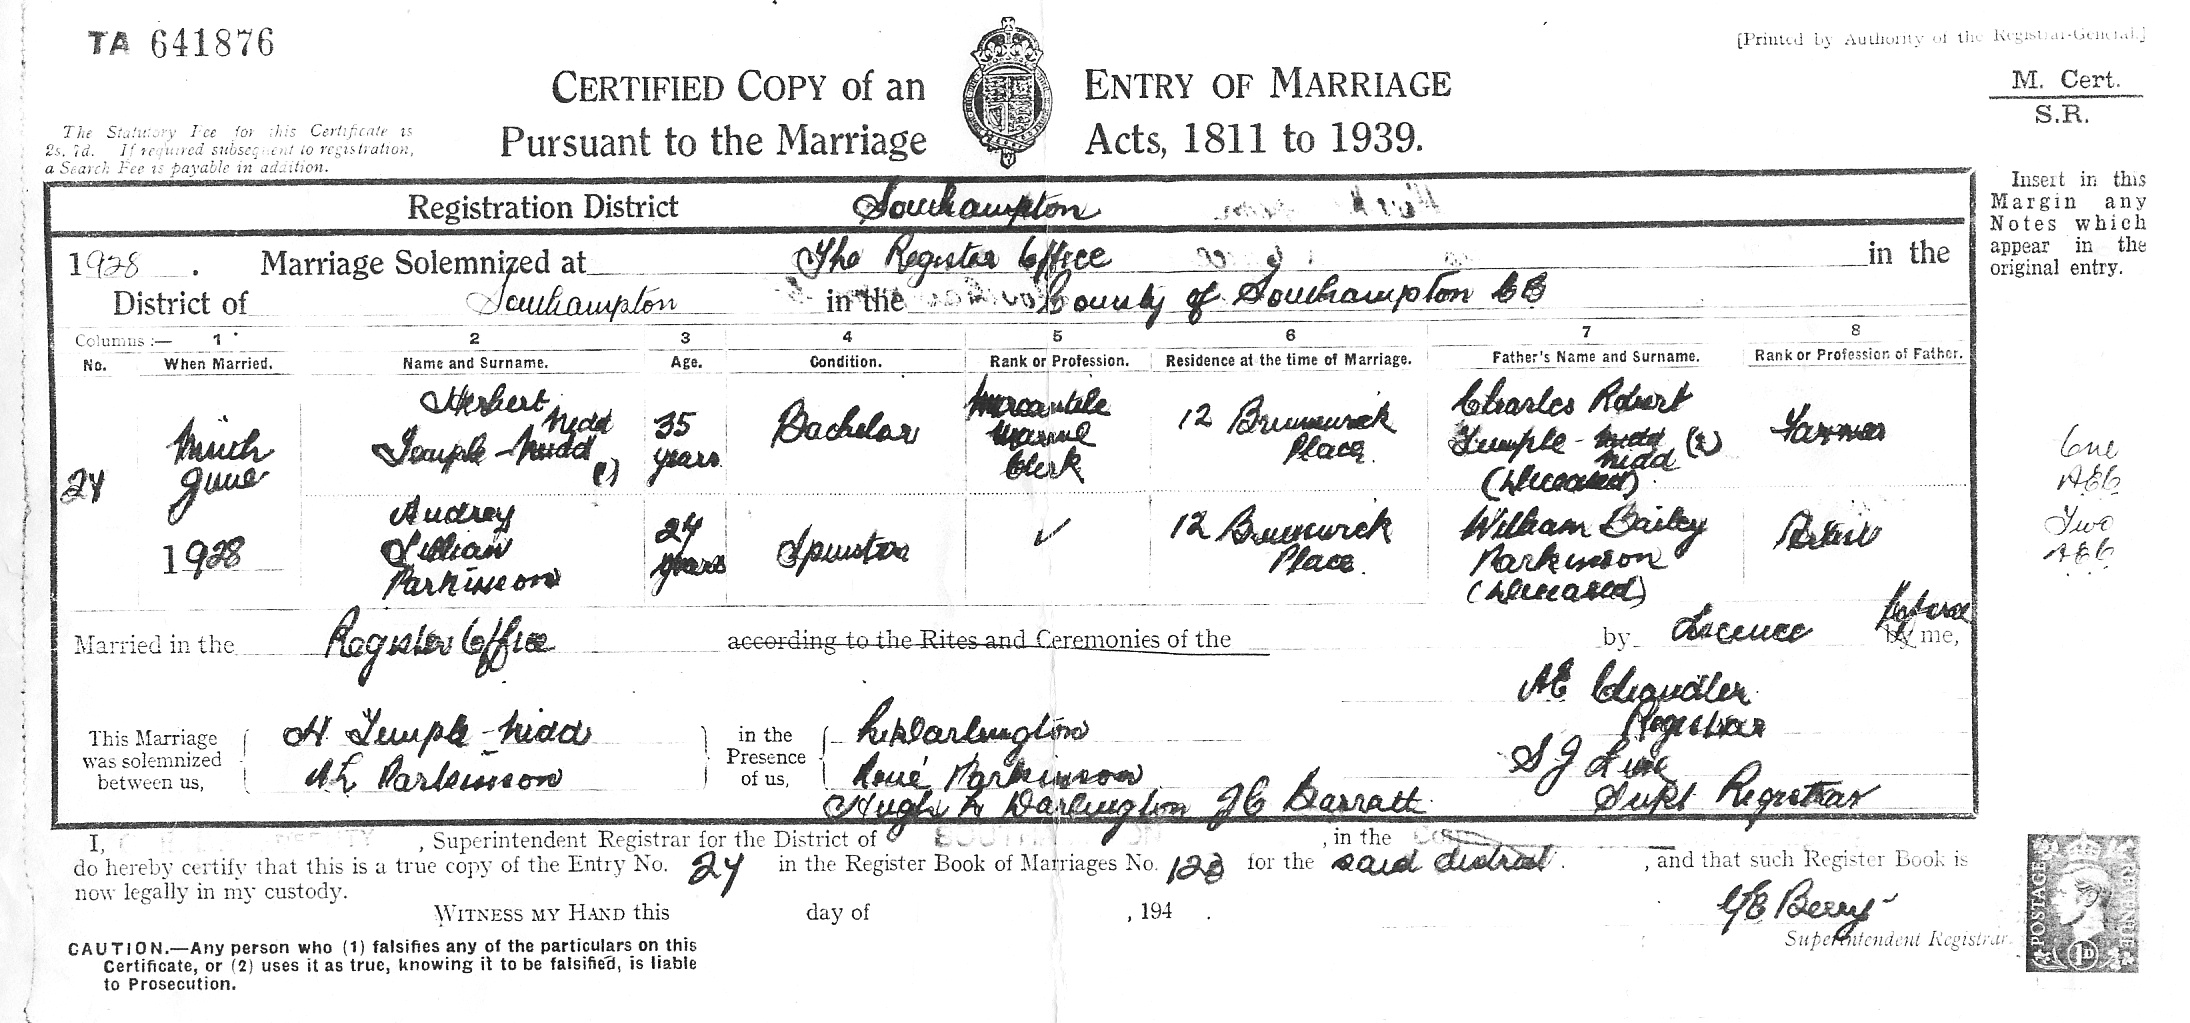 TA 641876
[Printed by Authority of the Registrar-General.]
CERTIFIED COPY of an ENTRY OF MARRIAGE
Pursuant to the Marriage Acts, 1811 to 1939.
M. Cert.
S.R.
The Statutory Fee for this Certificate is
2s. 7d. If required subsequent to registration,
a Search Fee is payable in addition.
Insert in this
Margin any
Notes which
appear in the
original entry.
Registration District Southampton
1928. Marriage Solemnized at The Register Office in the
District of Southampton in the County of Southampton CB
Columns :— 1 2 3 4 5 6 7 8
No. When Married. Name and Surname. Age. Condition. Rank or Profession. Residence at the time of Marriage. Father's Name and Surname. Rank or Profession of Father.
24
Ninth
June
1928
Herbert
Nidd
Temple-Nidd
(1)
35
years
Bachelor
Mercantile
Marine
Clerk
12 Brunswick
Place
Charles Robert
Temple-Nidd (2)
Nidd
(Deceased)
Farmer
One
AEC
Audrey
Lillian
Parkinson
24
years
Spinster
✓
12 Brunswick
Place
William Bailey
Parkinson
(Deceased)
Artist
Two
AEC
Married in the Register Office according to the Rites and Ceremonies of the by Licence before by me,
This Marriage
was solemnized
between us,
H Temple-Nidd
AL Parkinson
in the
Presence
of us,
Darlington
René Parkinson
Hugh H Darlington JC Barratt
AE Chandler
Registrar
S J
Supt Registrar
I, , Superintendent Registrar for the District of SOUTHAMPTON , in the
do hereby certify that this is a true copy of the Entry No. 24 in the Register Book of Marriages No. 123 for the said district. , and that such Register Book is
now legally in my custody.
WITNESS MY HAND this day of , 194 .
GE Berry
Superintendent Registrar.
CAUTION.—Any person who (1) falsifies any of the particulars on this
Certificate, or (2) uses it as true, knowing it to be falsified, is liable
to Prosecution.
POSTAGE
REVENUE
1D